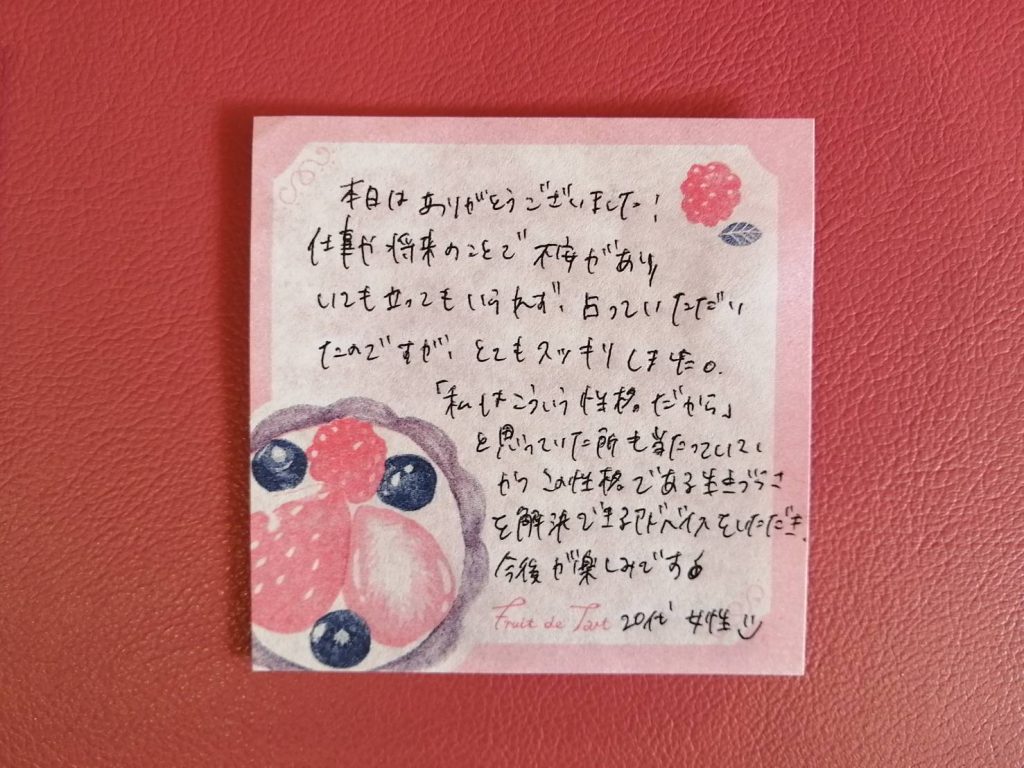 本日は ありがとうございました!
仕事や将来のことで 不安があり
いても立ってもいられず、占っていただい
たのですが、とてもスッキリしました。
「私はこういう性格。だから」
と思っていた所も当たっていて、
かつこの性格である生きづらさ
を解決できるアドバイスをいただき、
今後が楽しみです
Fruit de Tart 20代 女性